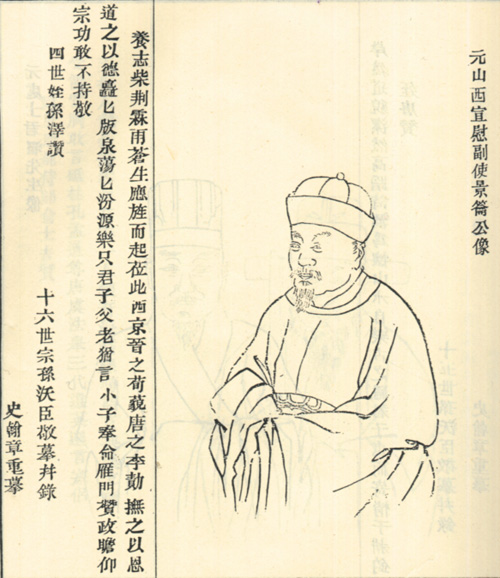 元山西宣慰副使景公像
養志柴荆霖雨蒼生應旌而起莅此西京晉之荀藐唐之李勣撫之以恩
道之以德矗匕版泉蕩匕汾源樂只君子父老猶言小子奉命雁門贊政瞻仰
宗功敢不持敬
四世姪孫澤讚
十六世宗孫沃臣敬摹幷錄
史翰章重摹